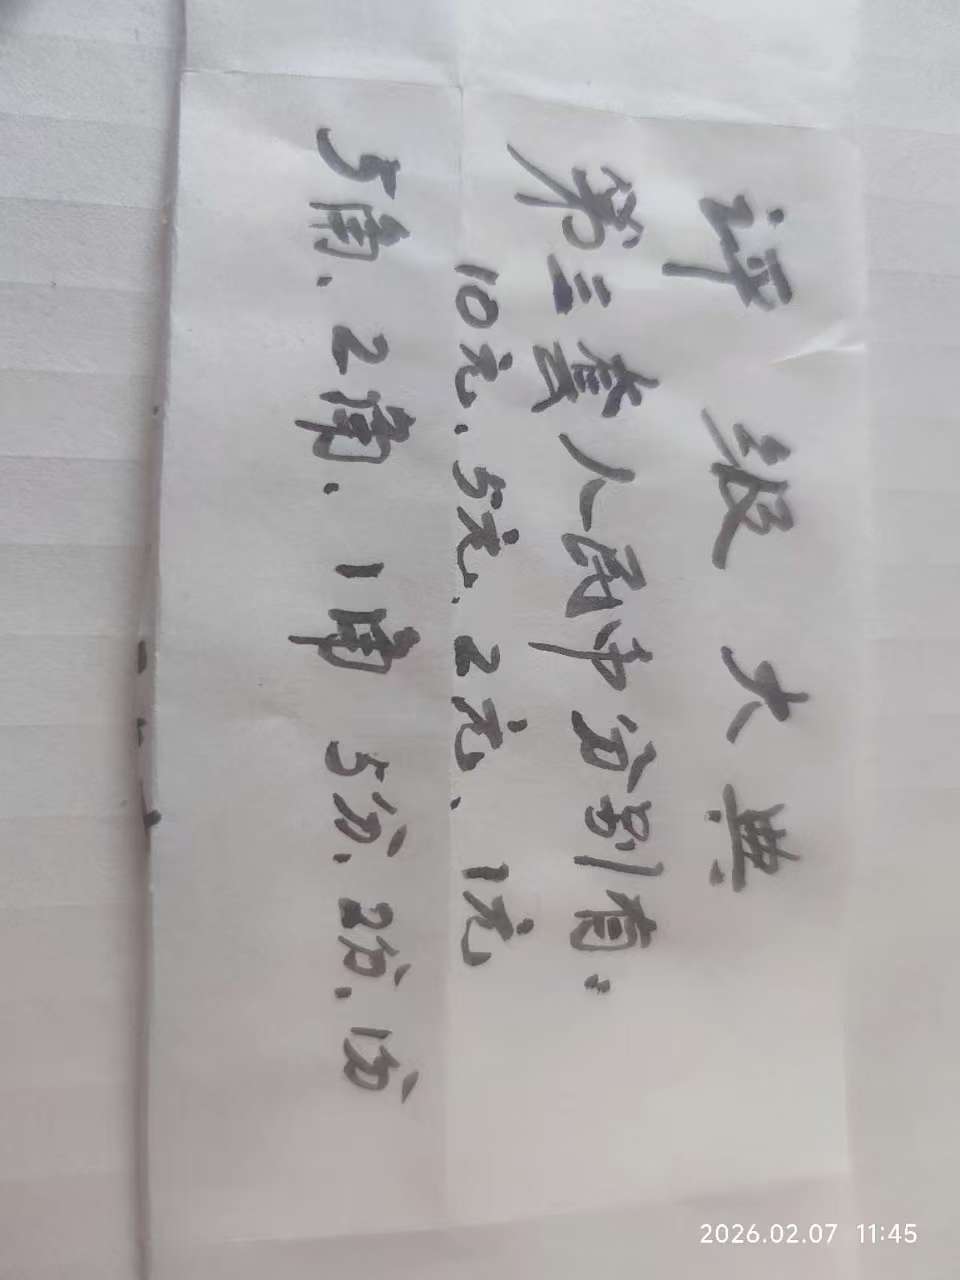 评级大典
第三套人民币分别有:
10元、5元、2元、1元
5角、2角、1角 5分、2分、1分
2026.02.07 11:45